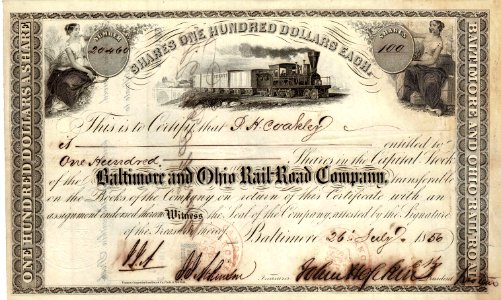 NUMBER
20460
SHARES ONE HUNDRED DOLLARS EACH.
SHARES
100
ONE HUNDRED DOLLARS A SHARE
BALTIMORE AND OHIO RAIL-ROAD
This is to Certify that J H Coakley
is entitled to
One Hundred Shares in the Capital Stock
of the Baltimore and Ohio Rail-Road Company, transferable
on the Books of the Company on return of this Certificate with an
assignment endorsed thereon Witness the Seal of the Company, attested by the Signature
of the Treasurer thereof.
Baltimore 26th July 1856
Treasurer
President